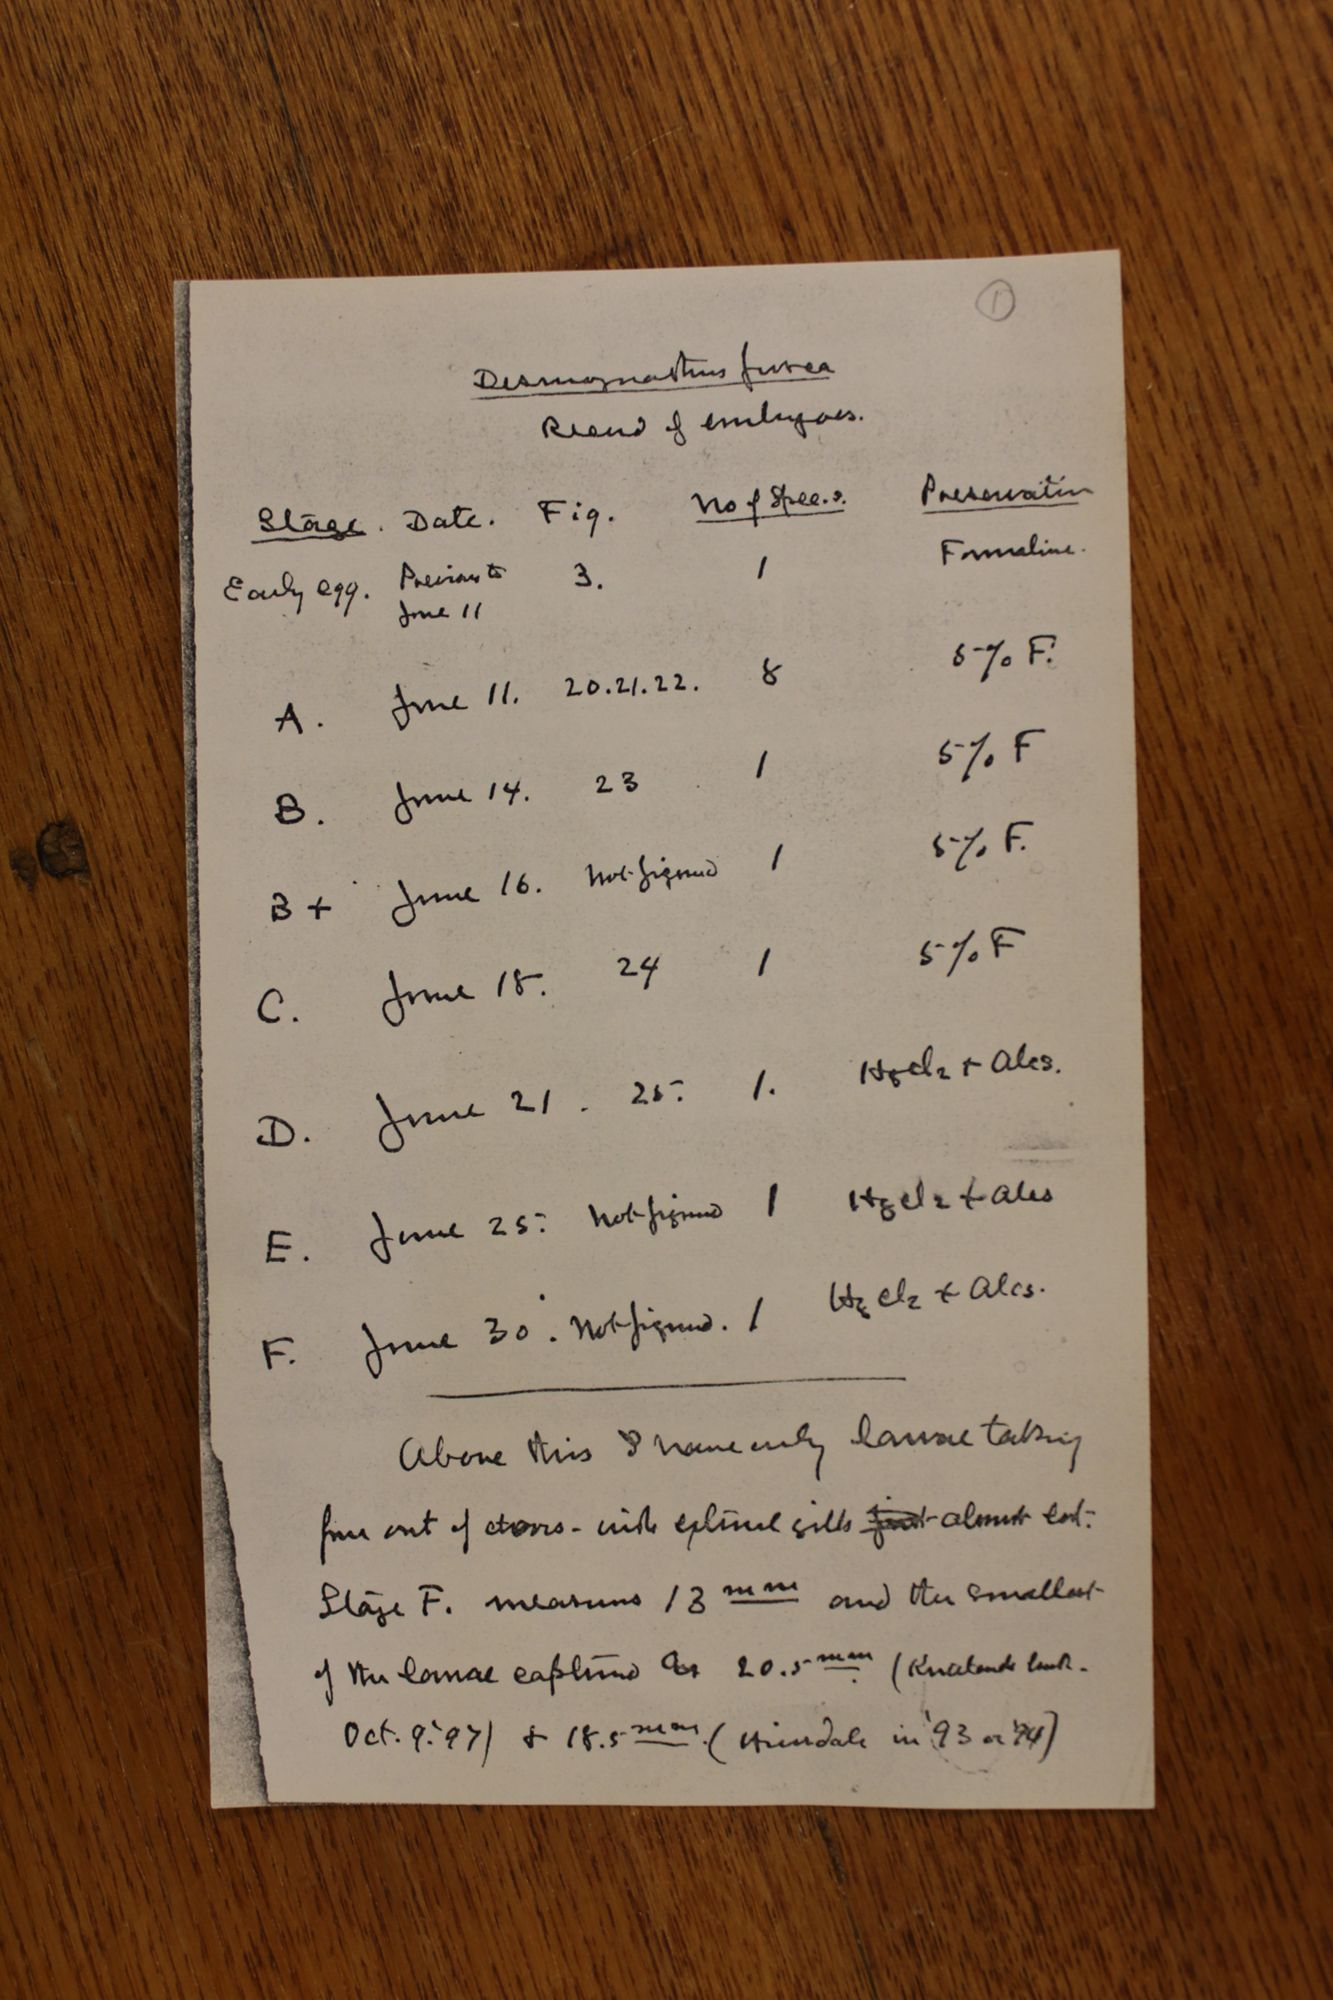 1
Desmognathus fusca
Record of embryos.
Stage. Date. Fig. No of Spec.s. Preservation
Early egg. Previous to 3. 1 Formaline.
June 11
A. June 11. 20.21.22. 8 5% F.
B. June 14. 23 1 5% F
B+ June 16. Not figured 1 5% F.
C. June 18. 24 1 5% F
D. June 21. 25. 1. HgCl2 + Alco.
E. June 25. Not figured 1 HgCl2 + Alco
F. June 30. Not figured. 1 HgCl2 + Alco.
Above this I have only larvae taking
out of doors - with external gills just almost lost.
Stage F. measures 13 mm and the smallest
of the larvae captured 20.5 mm (
Oct. 9. '97) & 18.5 mm. (Hinsdale in '93 or '94)